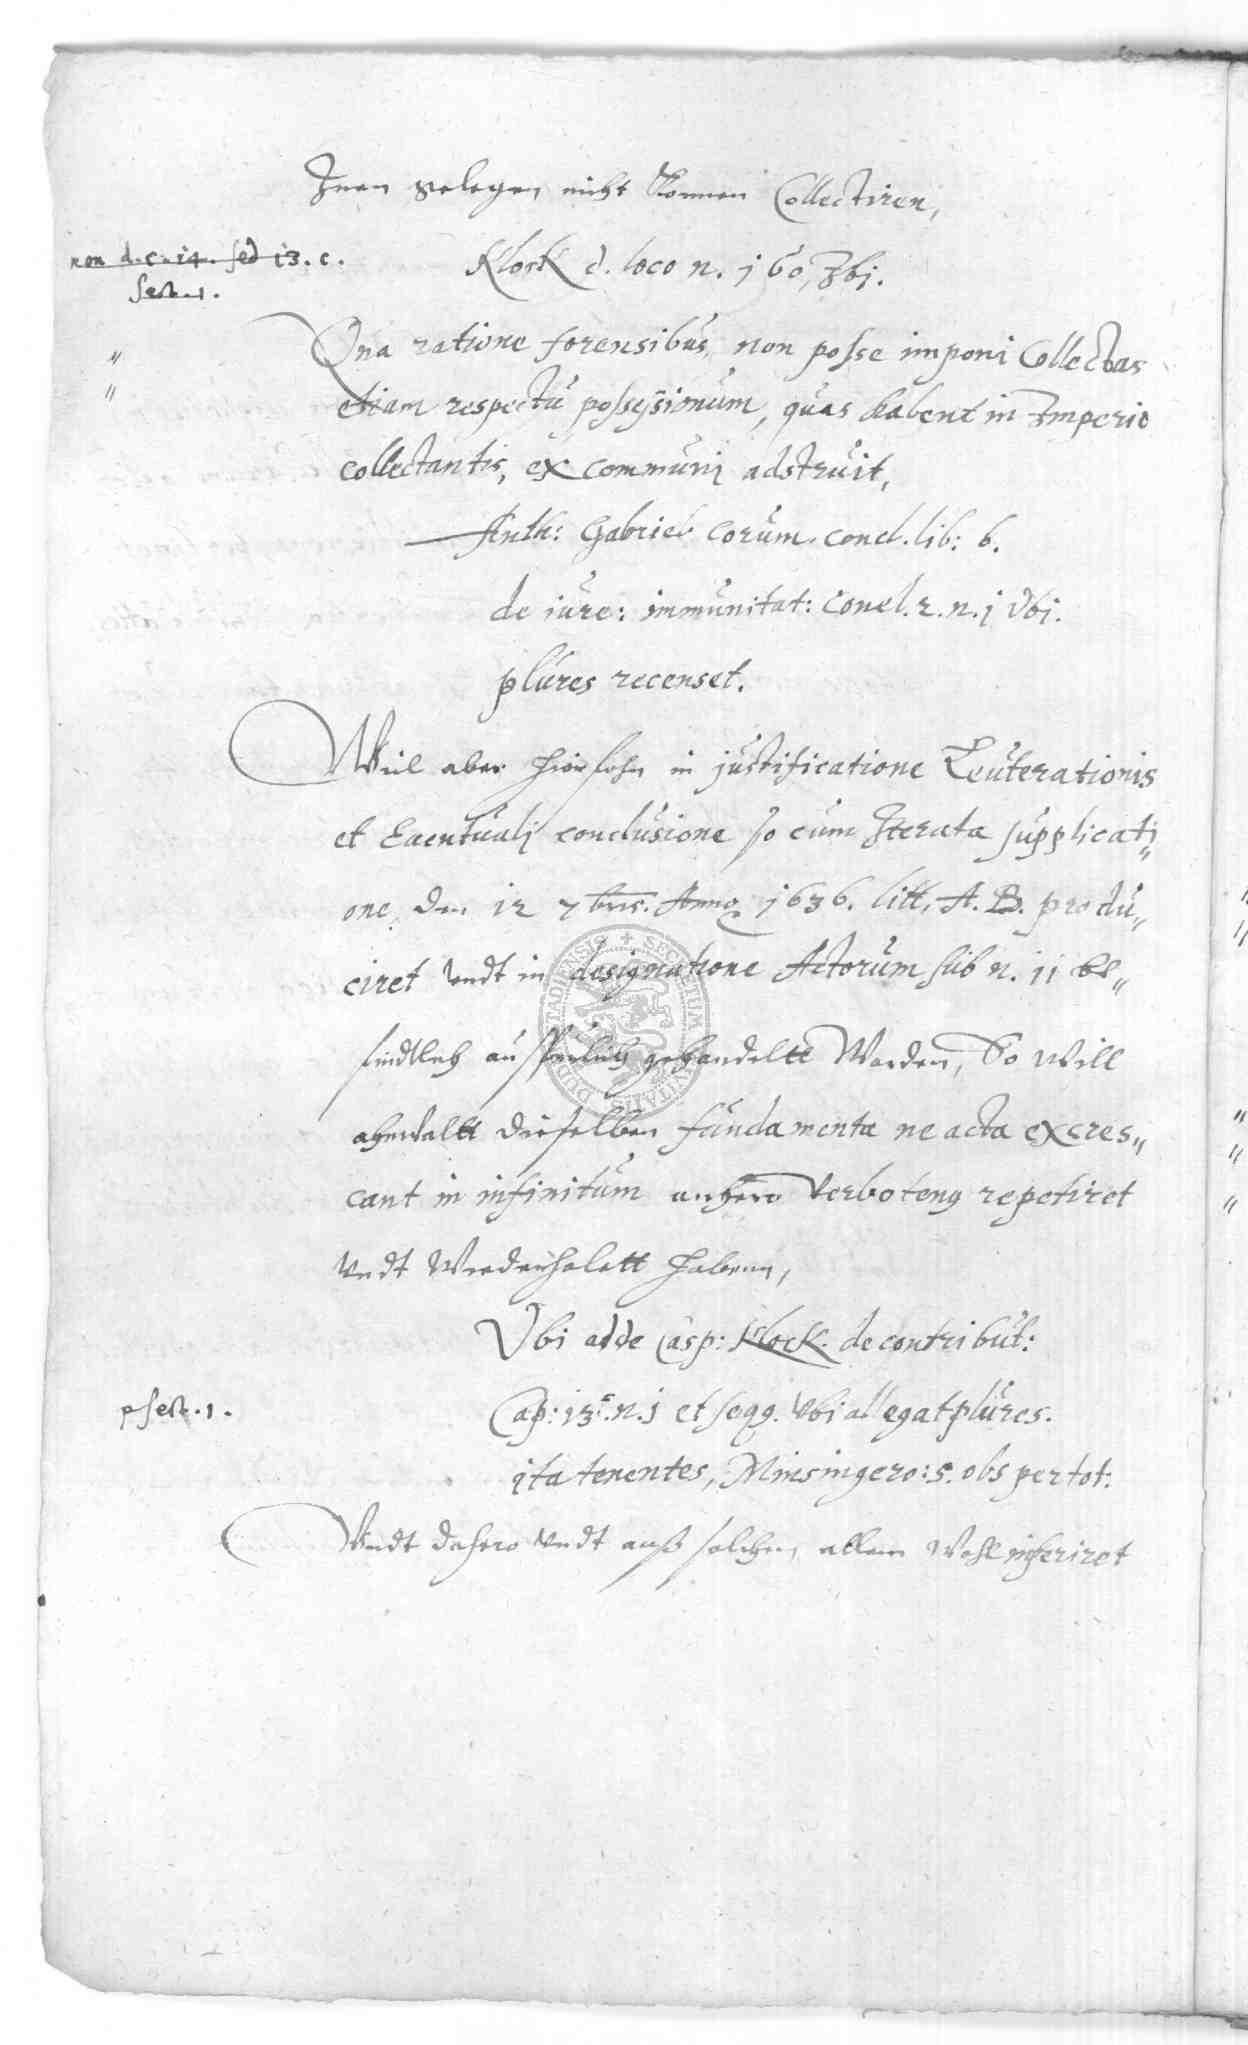 Ihnen gelegen nicht können Collectiren,
non d. c. 14. sed 13. c.
sect. 1.
Klock d. loco n. 160, Ibi.
Qua ratione forensibus, non posse imponi Collectas
etiam respectu possessionum, quas habent in Imperio
collectantis, ex communi adstruit,
Anth: Gabriel corum. concl. lib: 6.
de iure: immunitat: concl. 2. n. j Vbi.
plures recenset.
Weil aber hiervohn in justificatione Leuterationis
et Eaentuali conclusione so cum Iterata supplicati„
one, den 12 7bris. Anno 1636. litt. A. B. produ„
ciret undt in designatione Actorum sub n. 11 be„
findtlich außführlich gehandeltt Worden, So Will
ahnwaltt dieselben fundamenta ne acta excres„
cant in infinitum anhero verboteng repetiret
undt Wiederholett haben,
Vbi adde Casp: Klock. de contribut:
p sect. 1.
Cap: 13. n. j et seqq. Vbi allegat plures.
ita tenentes, Minsingero: 5. obs per tot:
Undt dahero undt auß solchen allem Wohl inferiret
SECRETUM CIVITATIS DUDERSTADIENSIS